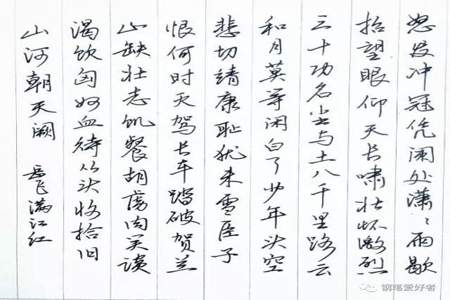 怒发冲冠凭阑处潇〻雨歇
抬望眼仰天长啸壮怀激烈
三十功名尘与土八千里路云
和月莫等闲白了少年头空
悲切靖康耻犹未雪臣子
恨何时灭驾长车踏破贺兰
山缺壮志饥餐胡虏肉笑谈
渴饮匈奴血待从头收拾旧
山河朝天阙 岳飞满江红
钢笔爱好者